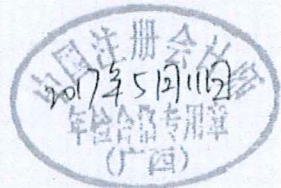 中国注册会计师
2017年5月11日
年检合格专用章
(广西)